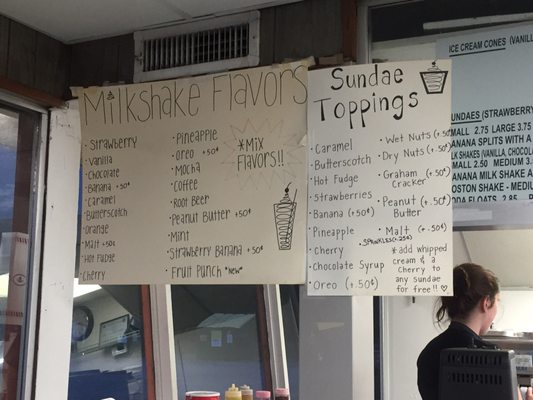 Milkshake Flavors
Strawberry
Vanilla
Chocolate
Banana +50¢
Caramel
Butterscotch
Orange
Malt +50¢
Hot Fudge
Cherry
Pineapple
Oreo +50¢
Mocha
Coffee
Root Beer
Peanut Butter +50¢
Mint
Strawberry Banana +50¢
Fruit Punch *New*
*Mix
Flavors!!
Sundae
Toppings
Caramel
Butterscotch
Hot Fudge
Strawberries
Banana (+50¢)
Pineapple
Cherry
Chocolate Syrup
Oreo (+.50¢)
Wet Nuts (+.50¢)
Dry Nuts (+.50¢)
Graham (+.50¢)
Cracker
Peanut (+.50¢)
Butter
Malt (+.50¢)
Sprinkles (+.25¢)
*add whipped
cream & a
Cherry to
any Sundae
for free!!
ICE CREAM CONES (VANILLA
SUNDAES (STRAWBERRY
SMALL 2.75 LARGE 3.75
BANANA SPLITS WITH
SMALL 2.50 MEDIUM 3.
BANANA MILK
BOSTON SHAKE - MEDIUM
SODA FLOATS 2.85